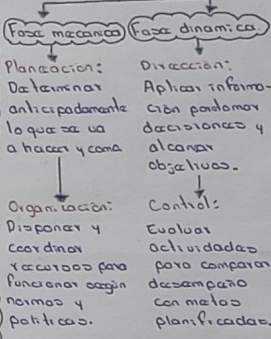 Fase mecanica
Planeacion:
Determinar
anticipadamente
lo que se va
a hacer y como
Organización:
Disponer y
coordinar
recursos para
funcionar según
normas y
políticas.
Fase dinamica
Dirección:
Aplicar informa-
ción para tomar
decisiones y
alcanar
objetivos.
Control:
Evaluar
actividades
para comparar
desempeño
con metas
planificadas.